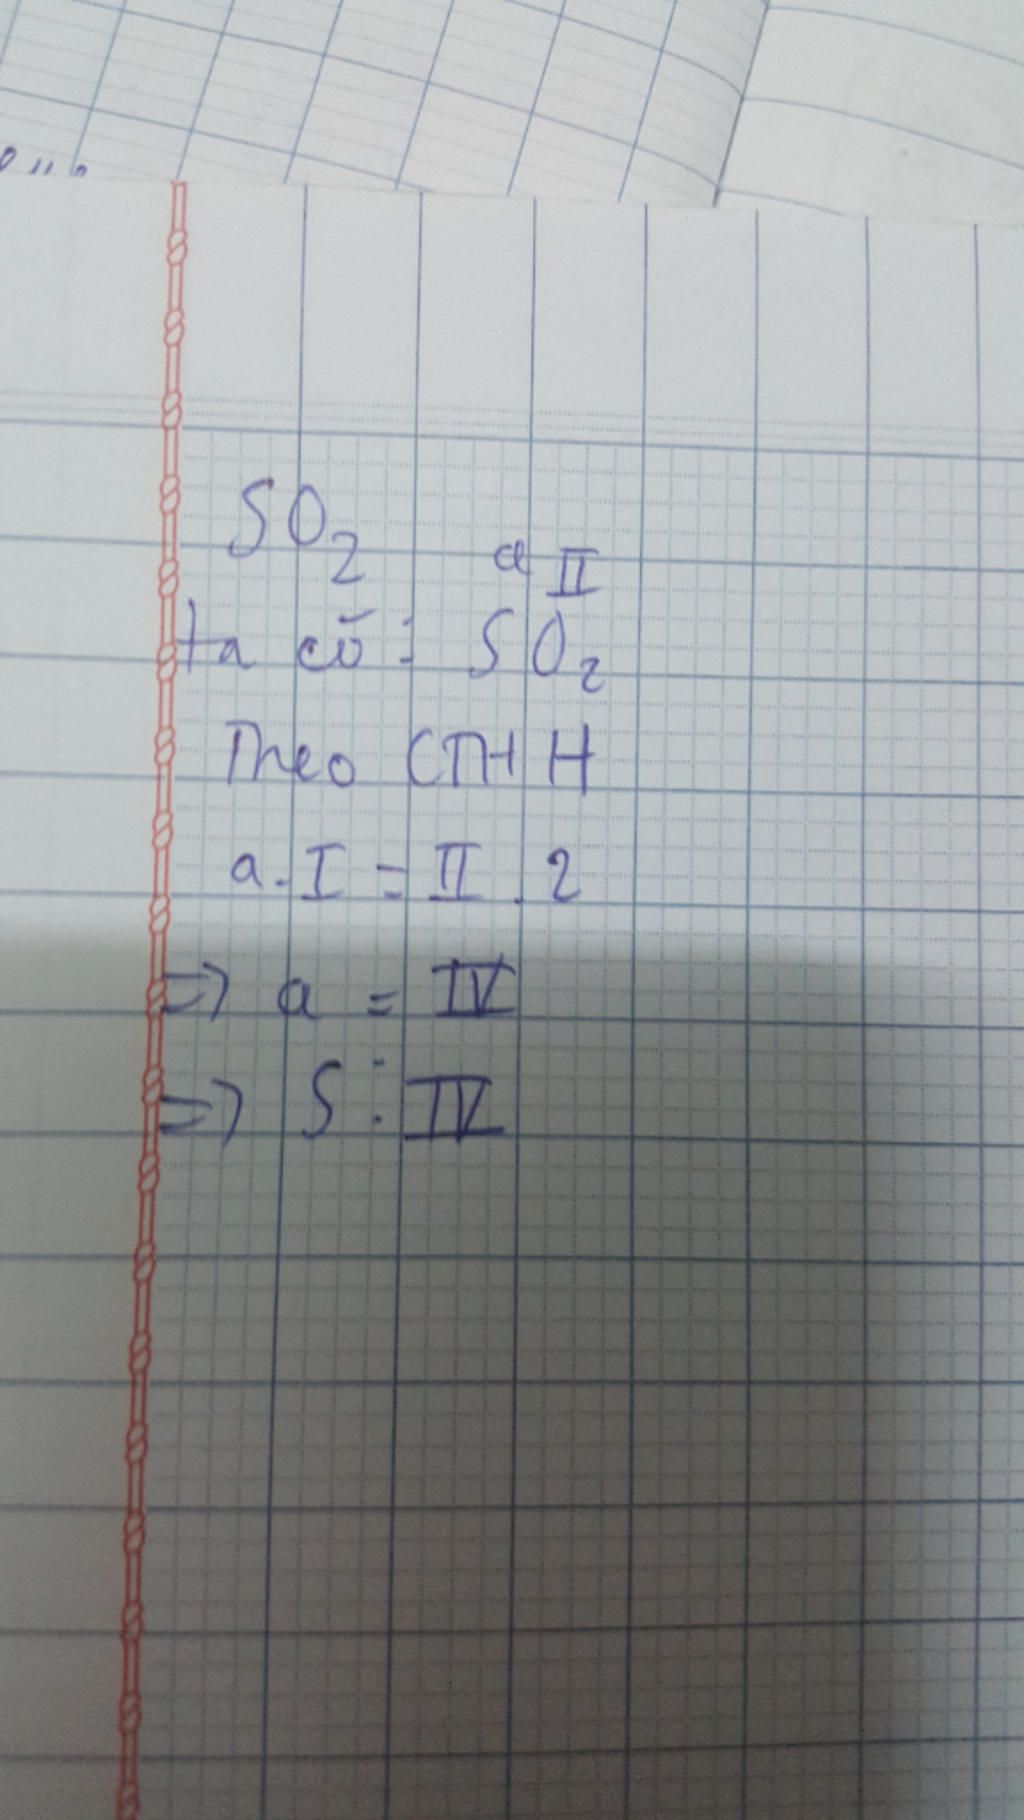 SO₂
a II
ta có: SO₂
Theo CTHH
a. I = II . 2
=> a = IV
=> S: IV